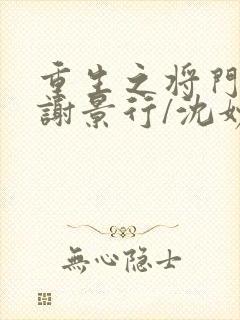 重生之将門
謝景行/沈妙
無心隐士